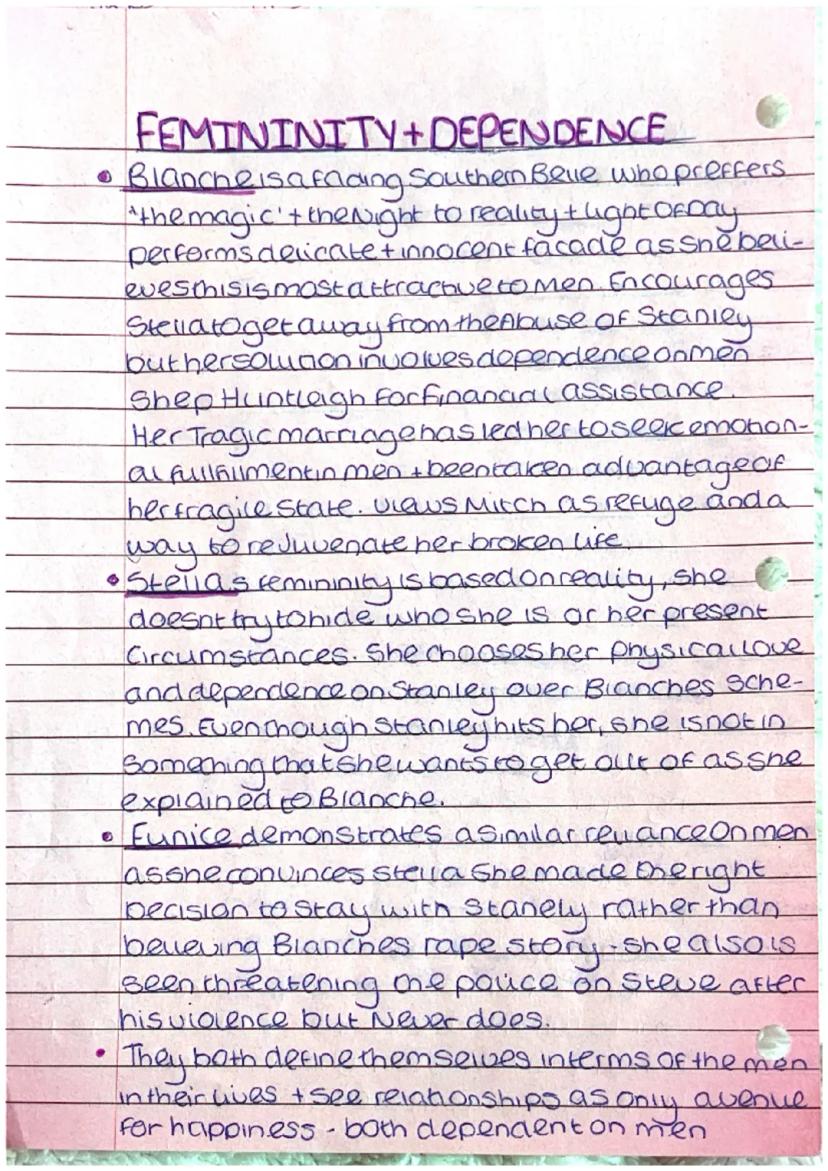 FEMININITY + DEPENDENCE
• Blanche is a fading Southern Belle who preffers
"the magic' + the Night to reality + light of Day
performs delicate + innocent facade as she beli-
eves this is most attractive to men. Encourages
Stella to get away from the Abuse of Stanley
but her solution involves dependence on men
Shep Huntleigh for financial assistance.
Her Tragic marriage has led her to seek emotion-
al fullfilment in men + been taken advantage of
her fragile state. views Mitch as refuge and a
way to rejuvenate her broken life.
• Stella's femininity is based on reality, she
doesnt try to hide who she is or her present
circumstances. She chooses her physical love
and dependence on Stanley over Blanches sche-
mes. Even though Stanley hits her, she is not in
something that she wants to get out of as she
explained to Blanche.
• Eunice demonstrates a similar reliance on men
as she convinces stella she made the right
Decision to stay with Stanely rather than
believing Blanches rape story - she also is
seen threatening the police on Steve after
his violence but Never does.
• They both define themselves in terms of the men
in their lives + see relationships as only avenue
for happiness - both dependent on men